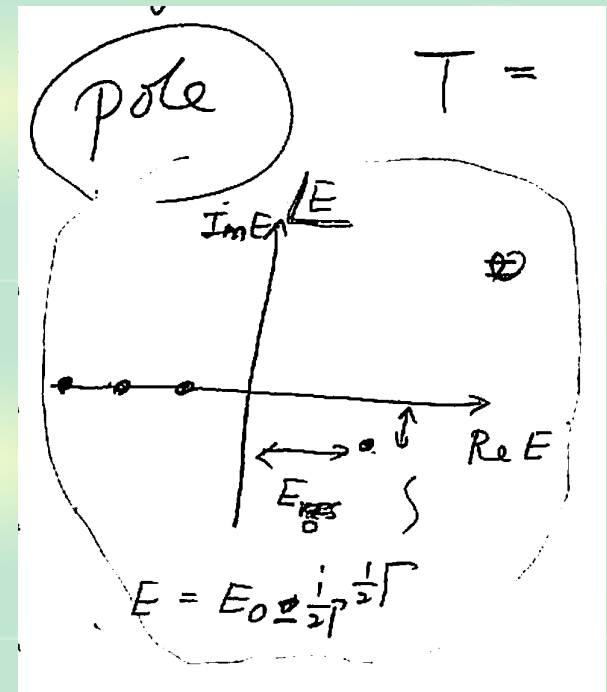 pole
T =
Im E
E
Re E
E
E = E₀
½Γ